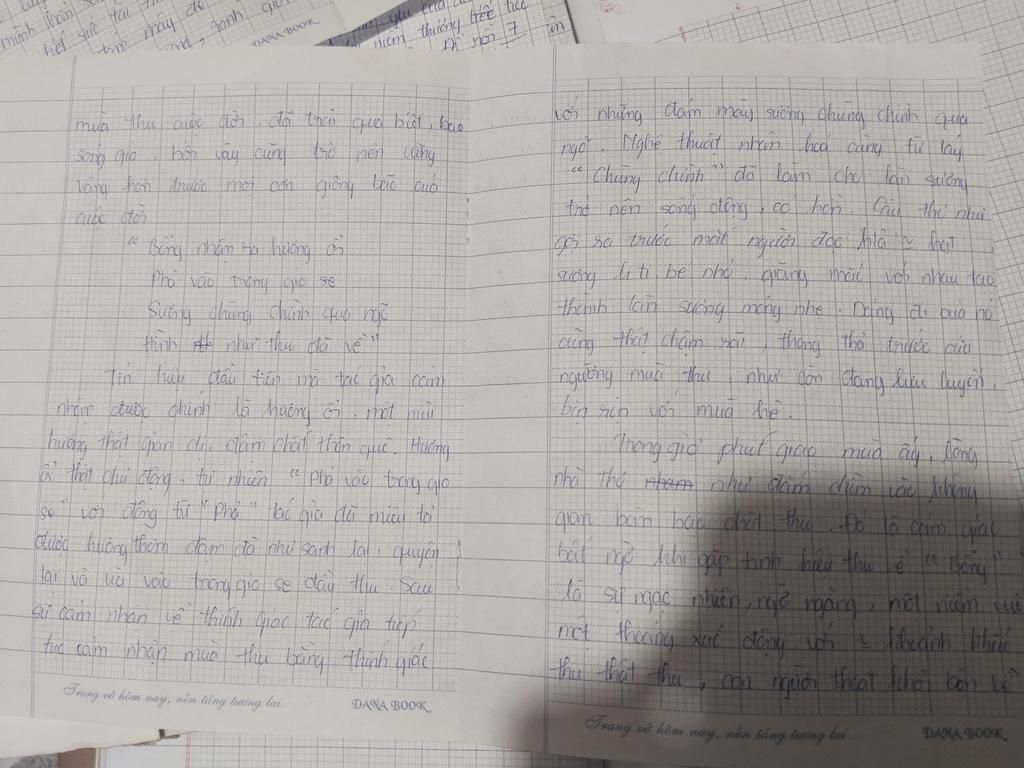 DANA BOOK
niềm thương
mùa thu cuộc đời, đã trải qua biết bao
song gió, bởi vậy cũng trở nên vững
vàng hơn trước mọi cơn giông bão của
cuộc đời
“ Bỗng nhận ra hương ổi
Phả vào trong gió se
Sương chùng chình qua ngõ
Hình như thu đã về”
Tín hiệu đầu tiên mà tác giả cảm
nhận được chính là hương ổi, một mùi
hương thật giản dị, đậm chất thôn quê. Hương
ổi thật chủ động, tự nhiên “ Phả vào trong gió
se” với động từ “ Phả ” tác giả đã miêu tả
được hương thơm đậm đà như sánh lại, quyện
lại và ùa vào trong gió se đầy thu. Sau
sự cảm nhận về thính giác tác giả tiếp
tục cảm nhận mùa thu bằng thính giác
Trang vở hôm nay, nền tảng tương lai. DANA BOOK
với những đám mây sương chùng chình qua
ngõ. Nghệ thuật nhân hoá cùng từ láy
“ Chùng chình” đã làm cho làn sương
trở nên sống động, có hồn. Câu thơ như
gợi ra trước mắt người đọc ~ hạt
sương li ti bé nhỏ, giăng mắc với nhau tạo
thành làn sương mỏng nhẹ. Dáng đi của nó
cũng thật chậm rãi, thong thả trước cửa
ngưỡng mùa thu, như còn đang lưu luyến,
bịn rịn với mùa hè.
Trong giờ phút giao mùa ấy, lòng
nhà thơ như đắm chìm vào không
gian bàn bạc chất thu. Đó là cảm giác
bất ngờ khi gặp tính hiệu thu về “ Bỗng ”
là sự ngạc nhiên, ngỡ ngàng, một niềm vui
một thoáng xúc động với ~ khoảnh khắc
thu thật thu, con người thoát khỏi bộn bề
Trang vở hôm nay, nền tảng tương lai. DANA BOOK